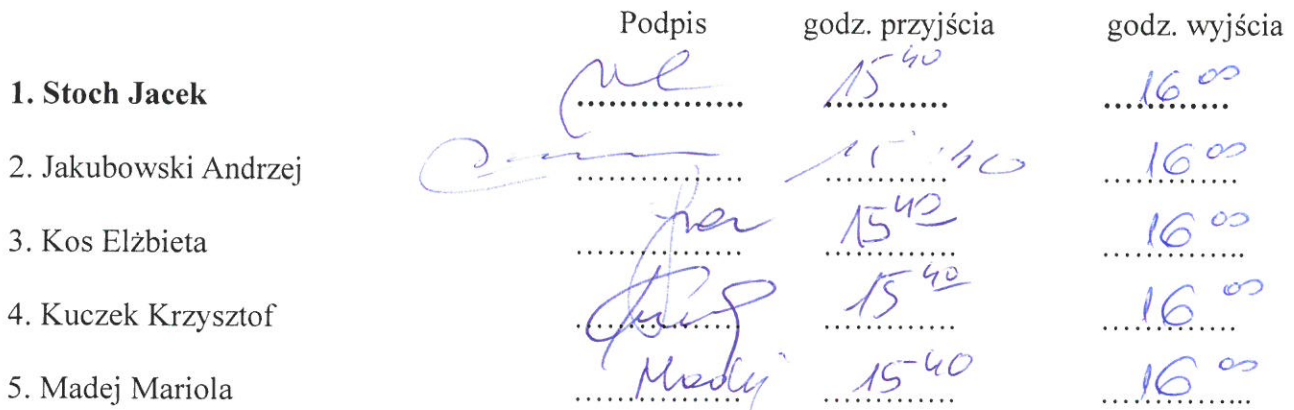 Podpis godz. przyjścia godz. wyjścia
1. Stoch Jacek ............... 15 40 16 00
2. Jakubowski Andrzej ............... 15 40 16 00
3. Kos Elżbieta ............... 15 40 16 00
4. Kuczek Krzysztof ............... 15 40 16 00
5. Madej Mariola Madej 15 40 16 00